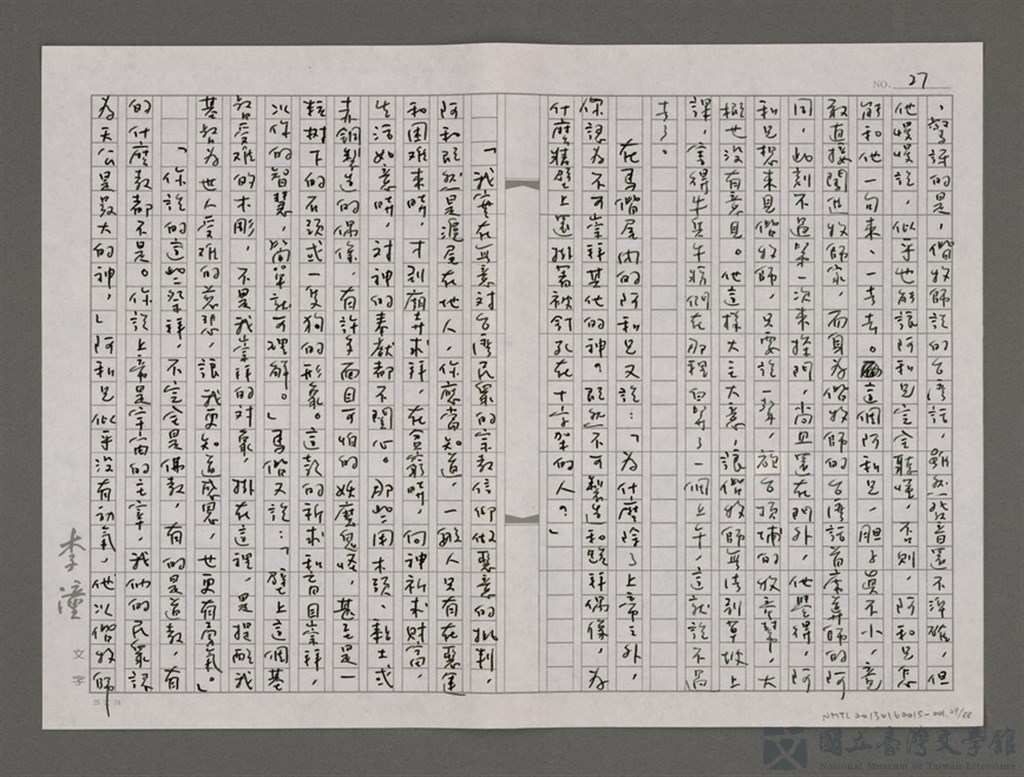 NO. 27
，驚訝的是，偕牧師說的台灣話，雖然發音還不準確，但
他慢慢說，似乎也能讓阿和兄完全聽懂，否則，阿和兄怎
能和他一句來、一句去。這個阿和兄，胆子真不小，竟
敢直接闖進牧師家，而身為偕牧師的台灣話首席導師的阿
同，此刻不過第一次來探門，尚且還在門外，他覺得，阿
和兄想來見偕牧師，只要說一聲，放台頂埔的牧童幫，大
概也沒有意見。他這樣大主大意，讓偕牧師無法到草坡上
課，害得牛與牛夥們在那裡白等了一個上午，這就說不過
去了。
在馬偕屋內的阿和兄又說：「為什麼除了上帝之外，
你認為不可崇拜其他的神？既然不可製造和跪拜偶像，為
什麼牆壁上還掛著被釘死在十字架的人？」
「我實在無意對台灣民眾的宗教信仰做惡意的批判，
阿和既然是漲尾在他人，你應當知道，一般人只有在惡運
和困難來時，才到廟寺求拜，在貧窮時，向神祈求財富，
生活如意時，對神的奉獻都不關心。那些用木頭、黏土或
青銅製造的偶像，有許多面目可怕的妖魔鬼怪，甚至是一
粒樹下的石頭或一隻狗的形象。這款的祈求和盲目崇拜，
以你的智慧，簡單就可理解。」馬偕又說：「壁上這個基
督受難的木彫，不是我崇拜的對象，掛在這裡，是提醒我
基督為世人受難的慈悲，讓我更知道感恩，也更有勇氣。」
「你說的這些祭拜，不完全是佛教，有的是道教，有
的什麼教都不是。你說上帝是宇宙的主宰，我們的民眾認
為天公是最大的神，」阿和兄似乎沒有動氣，他以偕牧師
李潼
文字
NMTL20130160015-001.29/88
國立臺灣文學館
National Museum of Taiwan Literature